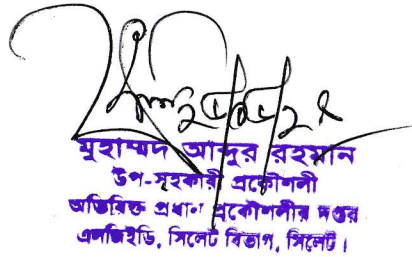 মুহাম্মদ আব্দুর রহমান
উপ-সহকারী প্রকৌশলী
অতিরিক্ত প্রধান প্রকৌশলীর দপ্তর
এলজিইডি, সিলেট বিভাগ, সিলেট।